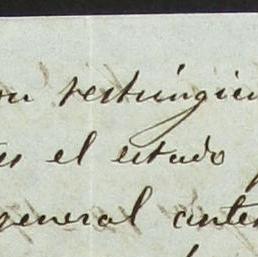 restringien
el estado
general anter